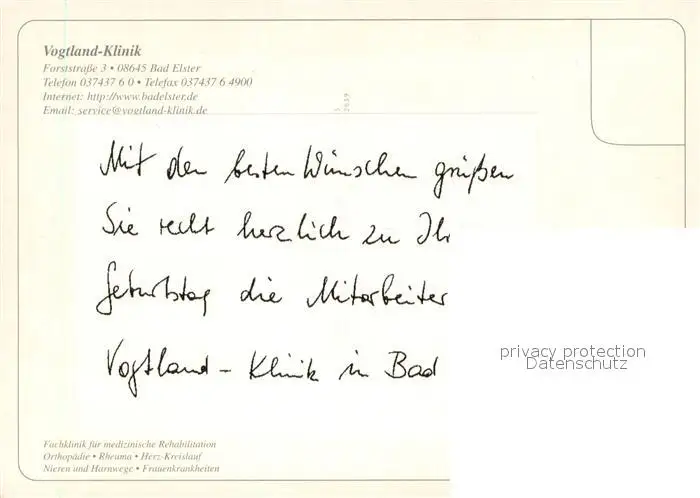 Vogtland-Klinik
Forststraße 3 • 08645 Bad Elster
Telefon 037437 6 0 • Telefax 037437 6 4900
Internet: http://www.badelster.de
Email: service@vogtland-klinik.de
Mit den besten Wünschen grüßen
Sie recht herzlich zu Ih
Geburtstag die Mitarbeiter
Vogtland-Klinik in Bad
privacy protection
Datenschutz
Fachklinik für medizinische Rehabilitation
Orthopädie • Rheuma • Herz-Kreislauf
Nieren und Harnwege • Frauenkrankheiten